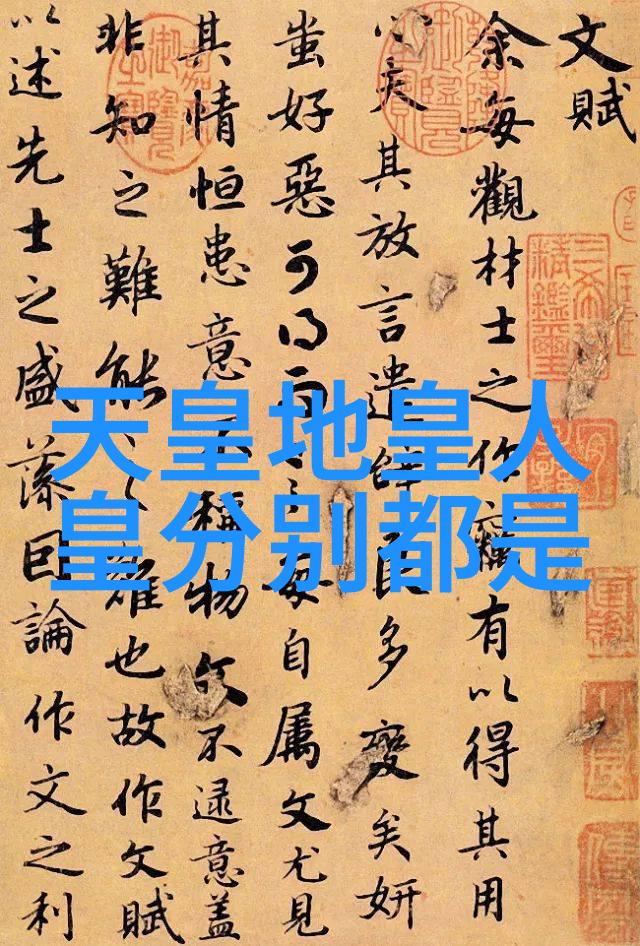 文賦
余每觀材士之作竊有以得其用
心夫其放言遣辭良多變矣妍
蚩好惡可得而言每自属文尤見
其情恒患意不稱物文不逮意蓋
非知之難能之難也故作文賦
以述先士之盛藻因論作文之利
天皇地皇人
皇分别都是